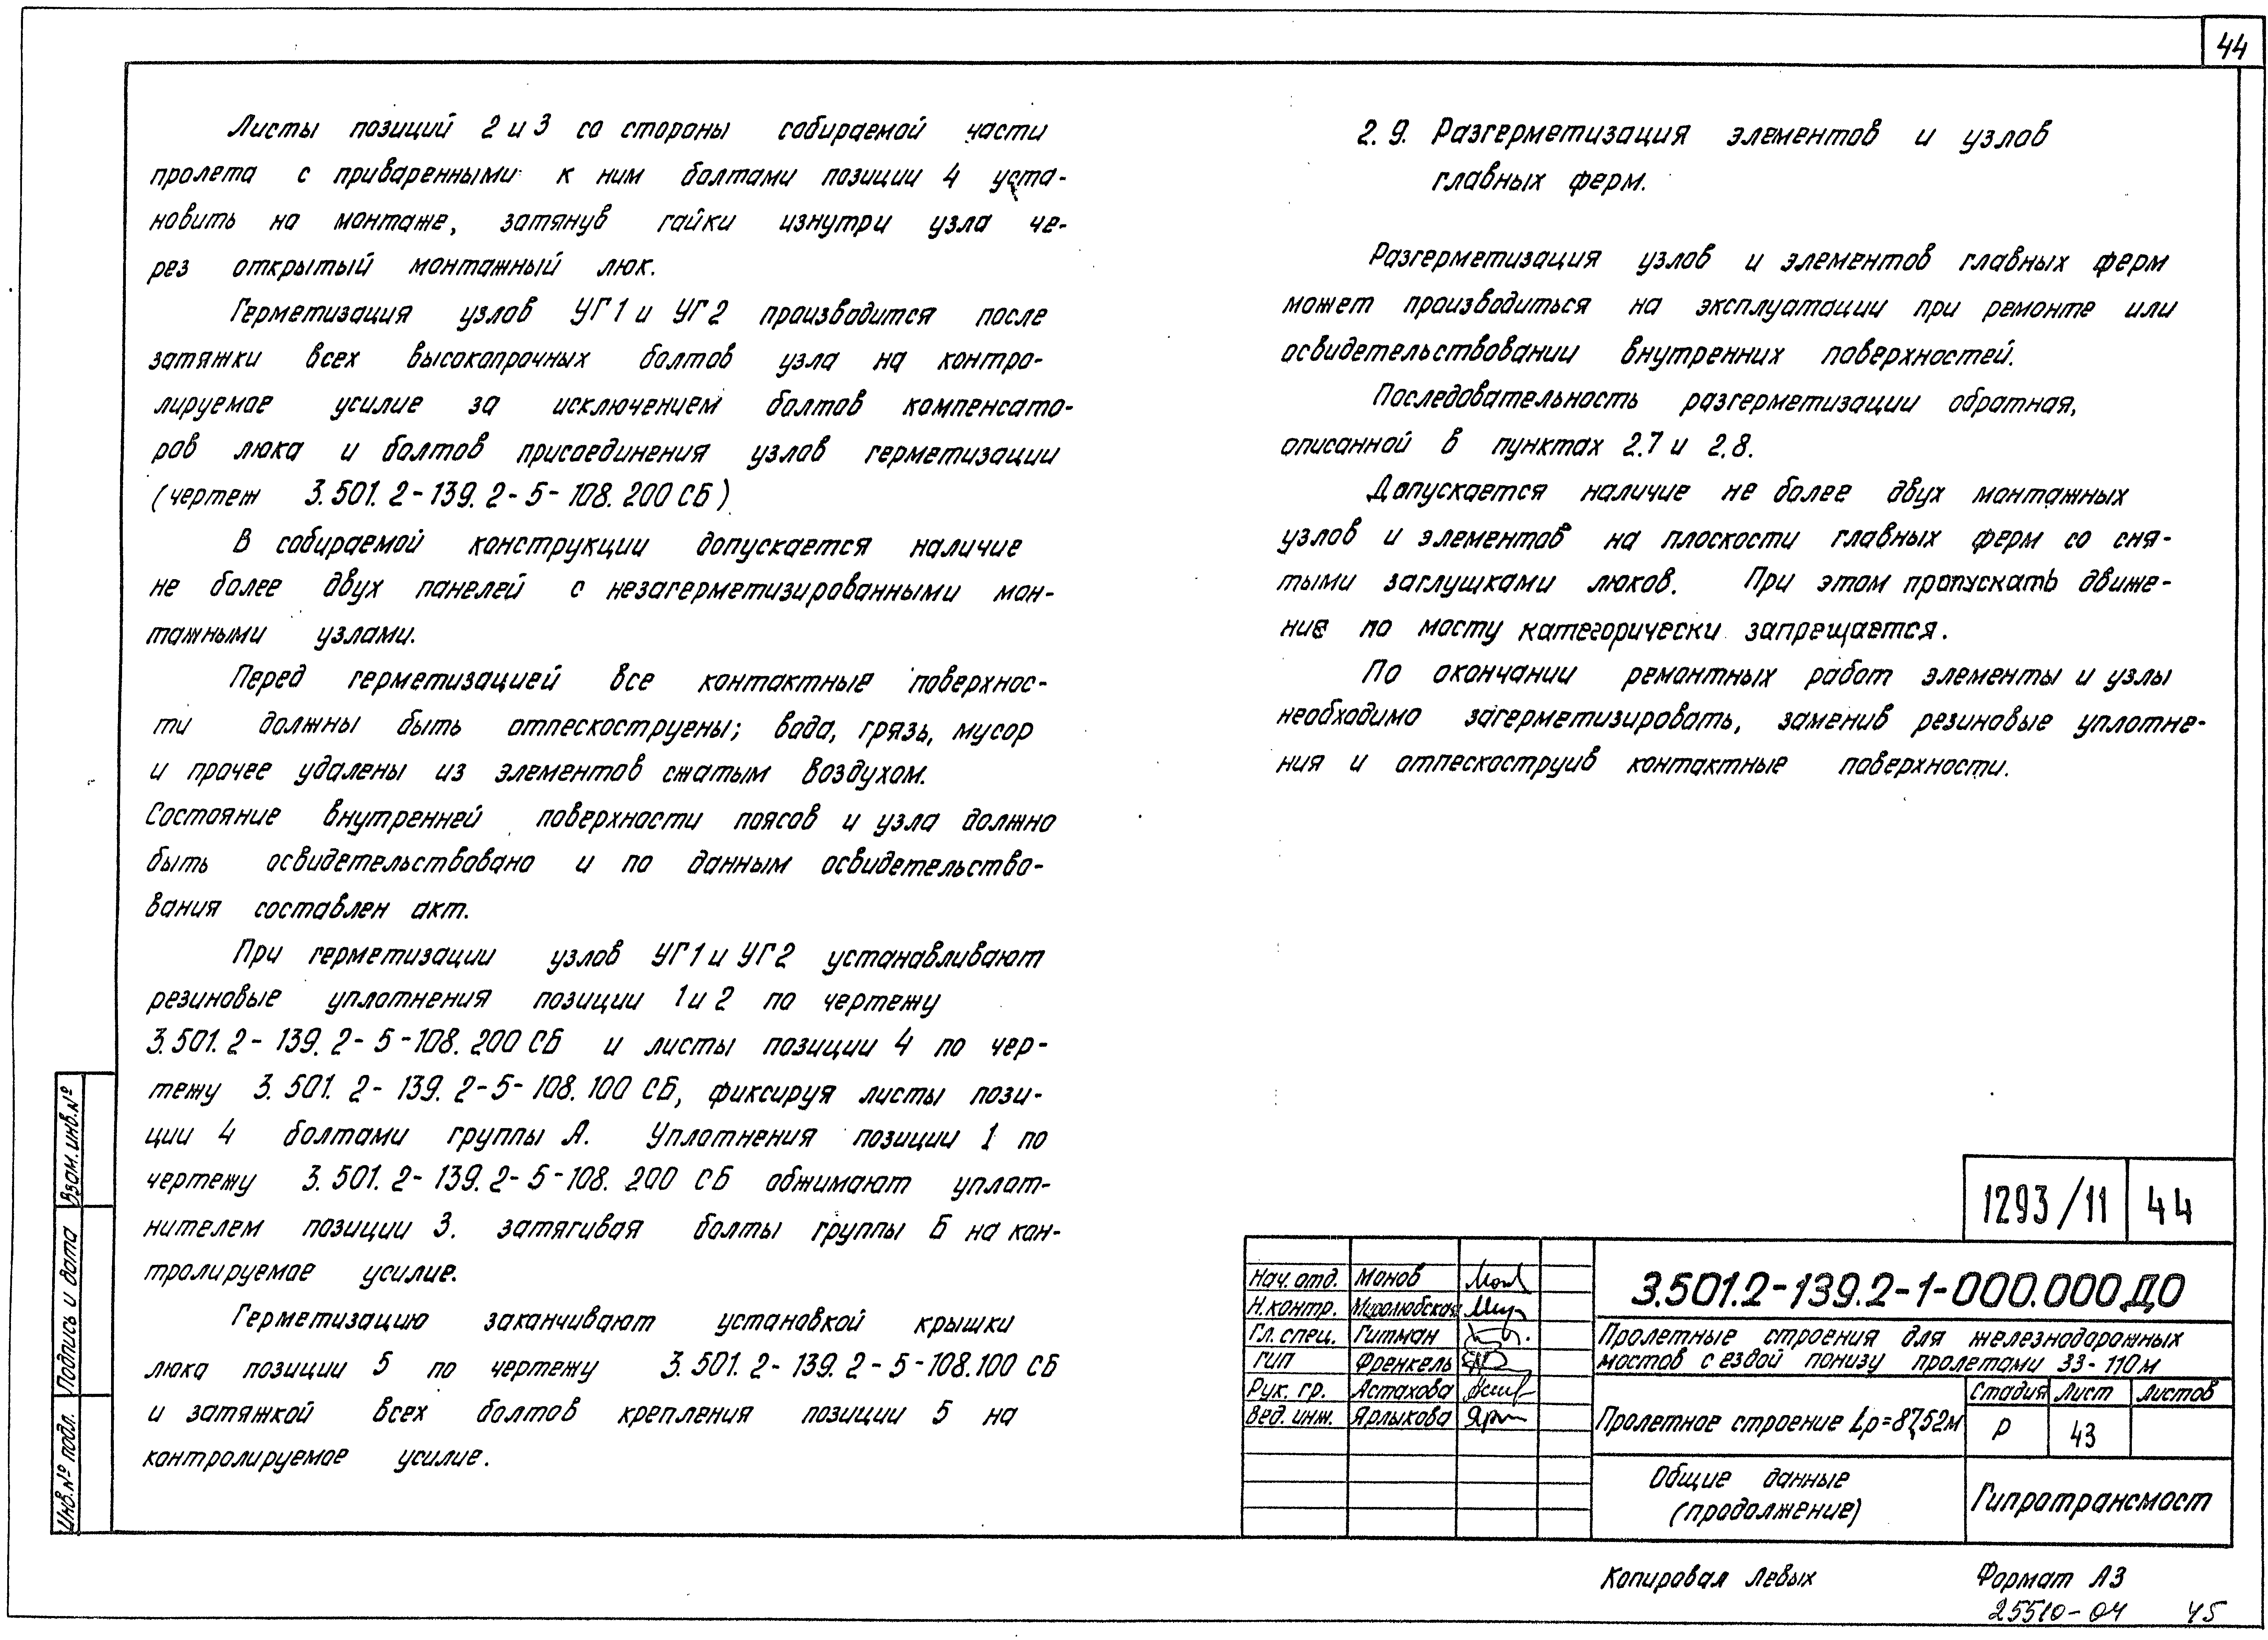 44
Листы позиций 2 и 3 со стороны собираемой части
пролета с приваренными к ним болтами позиции 4 уста-
новить на монтаже, затянув гайки изнутри узла че-
рез открытый монтажный люк.
Герметизация узлов УГ1 и УГ2 производится после
затяжки всех высокопрочных болтов узла на контро-
лируемое усилие за исключением болтов компенсато-
ров люка и болтов присоединения узлов герметизации
(чертеж 3.501.2-139.2-5-108.200 СБ)
В собираемой конструкции допускается наличие
не более двух панелей с незагерметизированными мон-
тажными узлами.
Перед герметизацией все контактные поверхнос-
ти должны быть отпескоструены; вода, грязь, мусор
и прочее удалены из элементов сжатым воздухом.
Состояние внутренней поверхности поясов и узла должно
быть освидетельствовано и по данным освидетельство-
вания составлен акт.
При герметизации узлов УГ1 и УГ2 устанавливают
резиновые уплотнения позиции 1 и 2 по чертежу
3.501.2-139.2-5-108.200 СБ и листы позиции 4 по чер-
тежу 3.501.2-139.2-5-108.100 СБ, фиксируя листы пози-
ции 4 болтами группы А. Уплотнения позиции 1 по
чертежу 3.501.2-139.2-5-108.200 СБ обжимают уплот-
нителем позиции 3. затягивая болты группы Б на кон-
тролируемое усилие.
Герметизацию заканчивают установкой крышки
люка позиции 5 по чертежу 3.501.2-139.2-5-108.100 СБ
и затяжкой всех болтов крепления позиции 5 на
контролируемое усилие.
2.9. Разгерметизация элементов и узлов
главных ферм.
Разгерметизация узлов и элементов главных ферм
может производиться на эксплуатации при ремонте или
освидетельствовании внутренних поверхностей.
Последовательность разгерметизации обратная,
описанной в пунктах 2.7 и 2.8.
Допускается наличие не более двух монтажных
узлов и элементов на плоскости главных ферм со сня-
тыми заглушками люков. При этом пропускать движе-
ние по мосту категорически запрещается.
По окончании ремонтных работ элементы и узлы
необходимо загерметизировать, заменив резиновые уплотне-
ния и отпескоструив контактные поверхности.
Взам. инв. №
Подпись и дата
Инв. № подл.
1293/11 44
3.501.2-139.2-1-000.000 ДО
Нач. отд. Монов
Н. контр. Миролюбская
Гл. спец. Гитман
ГИП Френкель
Рук. гр. Астахова
Вед. инж. Ярлыкова
Пролетные строения для железнодорожных
мостов с ездой понизу пролетами 33-110 м
Пролетное строение Lp=87,52м
Стадия Лист Листов
Р 43
Общие данные
(продолжение)
Гипротрансмост
Копировал Левых
Формат А3
25510-04 45